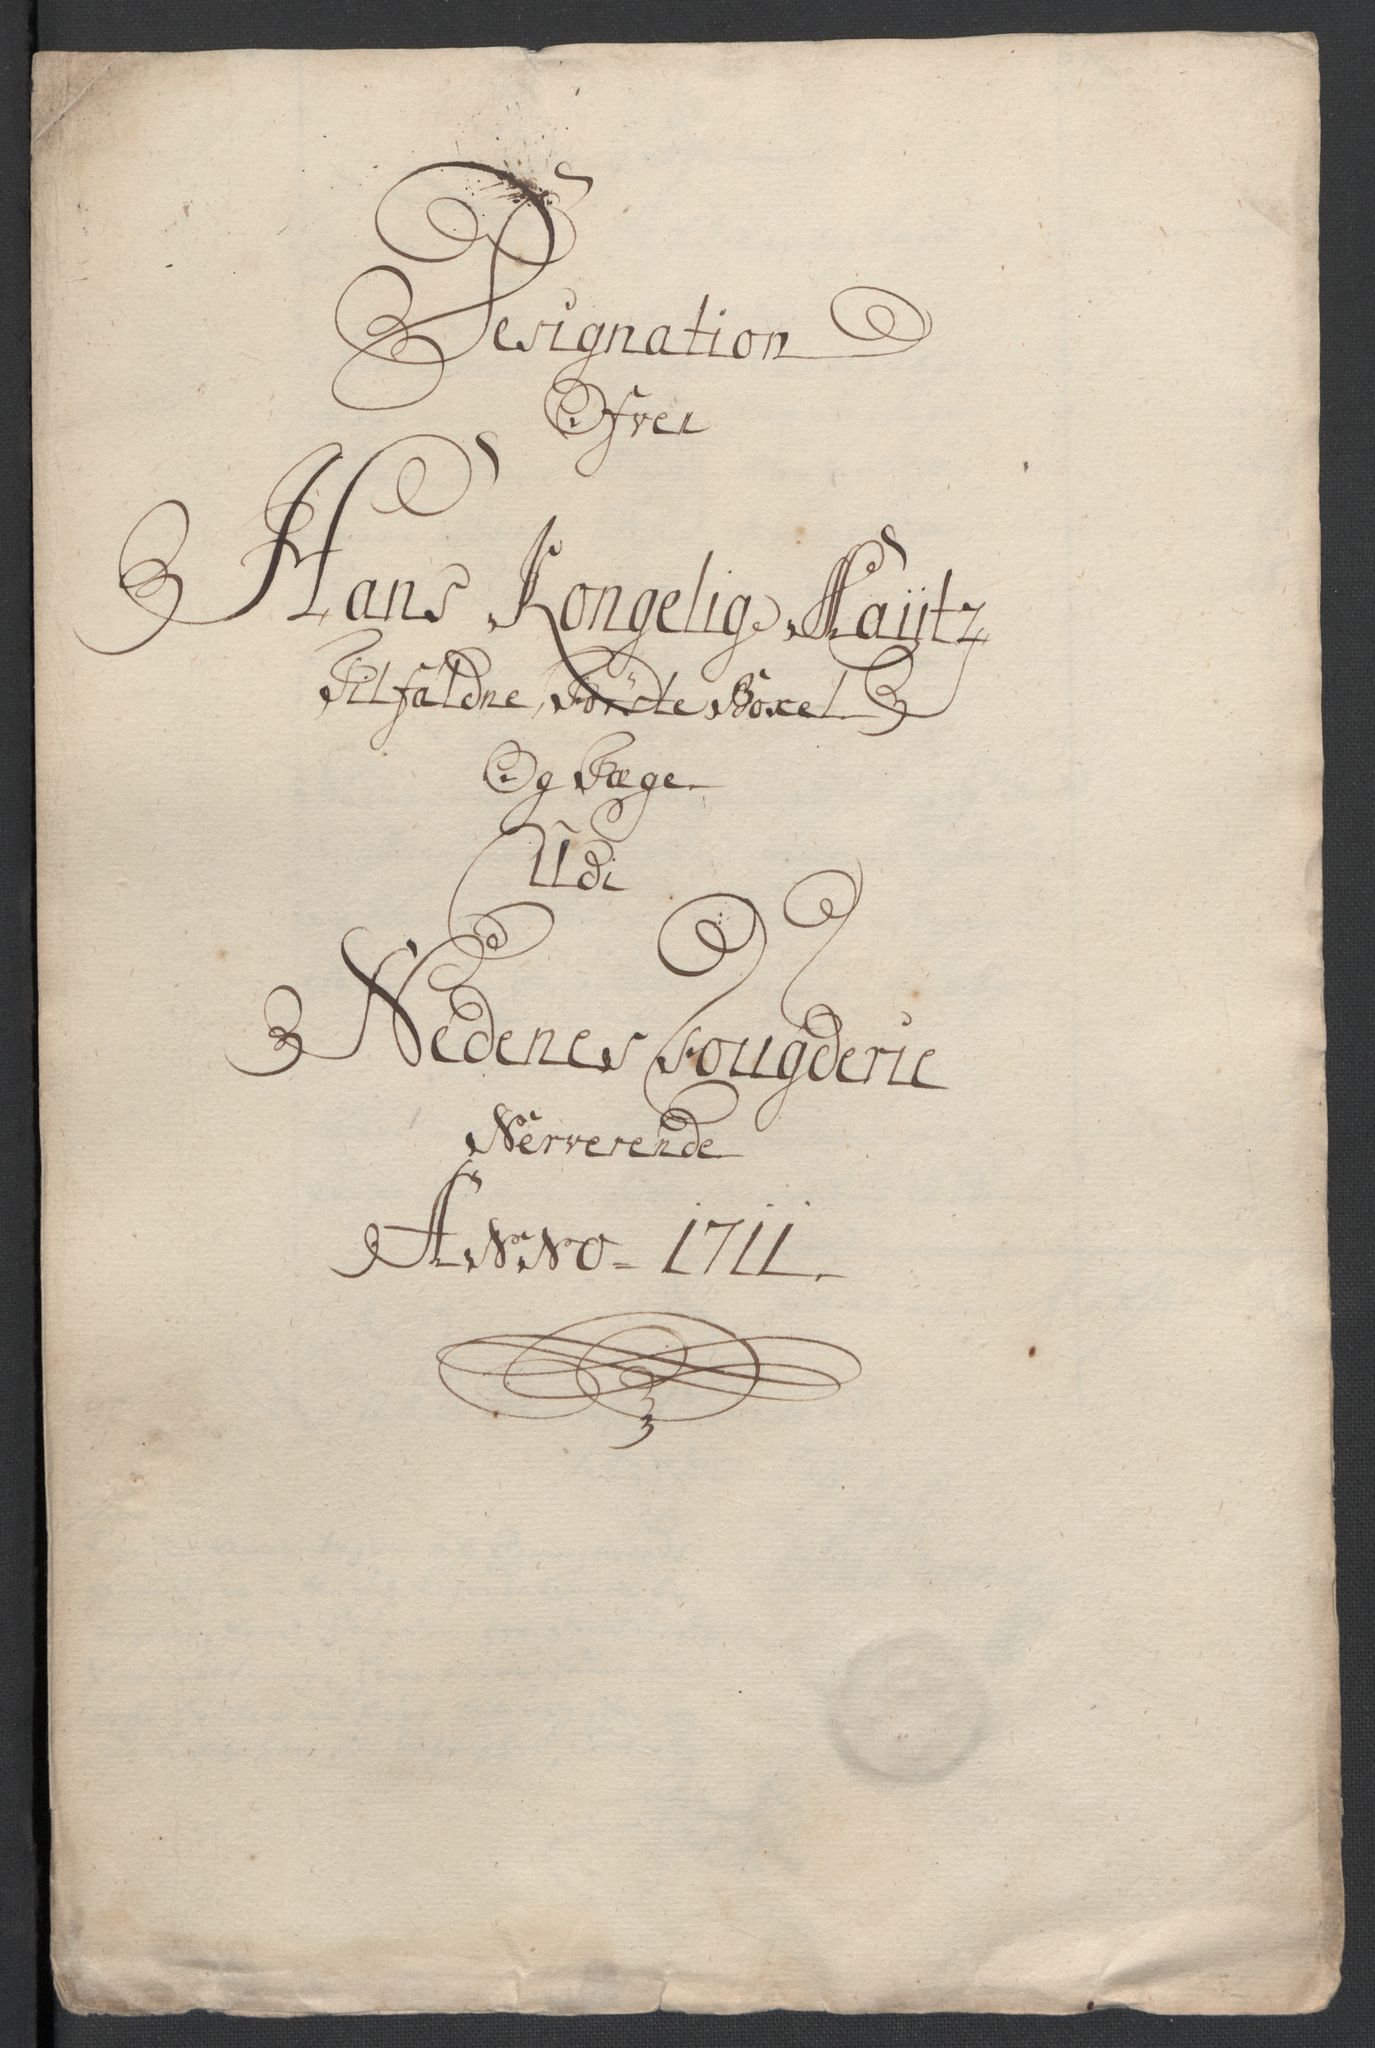 Designation
Ofver
Hans Kongelig Maÿtz
Tilfaldne, Förste Böxel
Og Tæge
Udi
Nedenes Fougderie
Nerverende
ANNO = 1711.